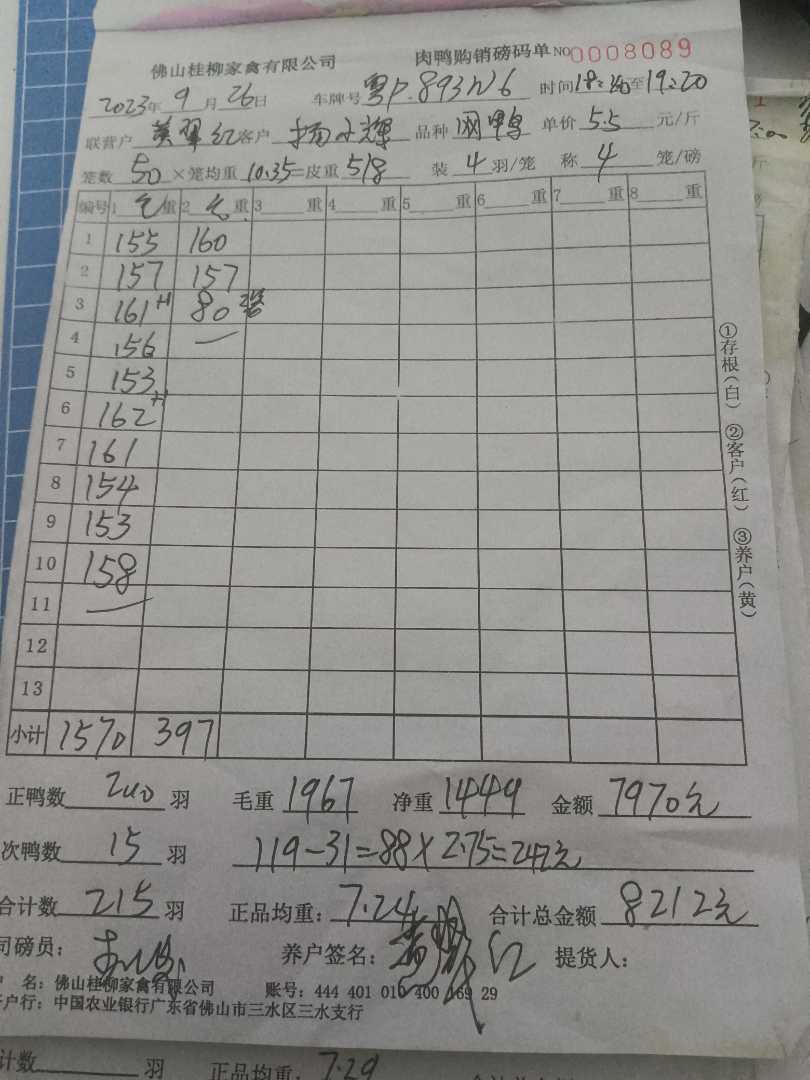 佛山桂柳家禽有限公司 肉鸭购销磅码单 NO 0008089
2023年 9月 26日 车牌号 粤P.893W6 时间 18:20至19:20
联营户 黄翠红 客户 杨小辉 品种 网鸭 单价 5.5 元/斤
笼数 50 ×笼均重 10.35=皮重 518 装 4 羽/笼 称 4 笼/磅
编号 1 毛 重 2 毛 重 3 重 4 重 5 重 6 重 7 重 8 重
1 155 160
2 157 157
3 161 +1 80 2笼
4 156 —
5 153
6 162 +1
7 161
8 154
9 153
10 158
11 —
12
13
小计 1570 397
①存根(白) ②客户(红) ③养户(黄)
正鸭数 200 羽 毛重 1967 净重 1449 金额 7970元
次鸭数 15 羽 119-31=88×2.75=242元
合计数 215 羽 正品均重: 7.24 合计总金额 8212元
司磅员: 养户签名: 黄翠红 提货人:
户 名: 佛山桂柳家禽有限公司 账号: 444 401 010 400 169 29
开户行: 中国农业银行广东省佛山市三水区三水支行
计数 羽 正品均重: 7.29